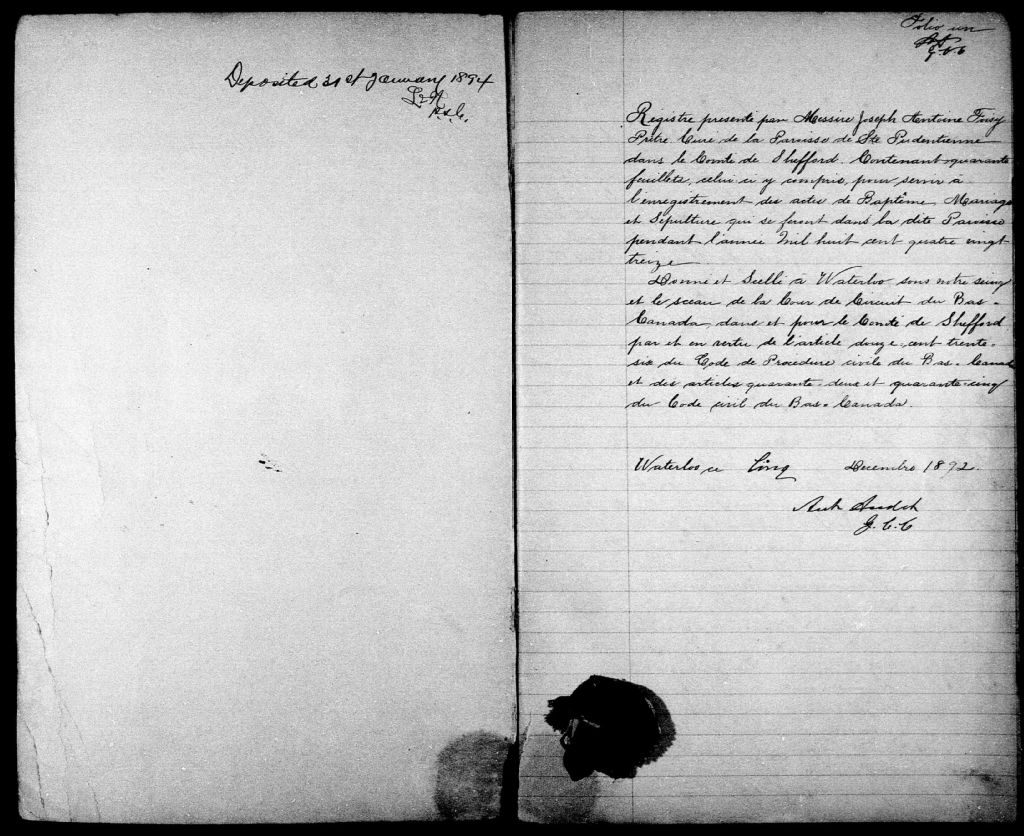 Deposited 31st January 1894
Folio un
Registre presenté par Messire Joseph Antoine
Prêtre Curé de la Paroisse de Ste Pudentienne
dans le Comté de Shefford. Contenant quarante
feuillets, celui ci y compris, pour servir à
l'enregistrement des actes de Baptême, Mariage
et Sépulture qui se feront dans la dite Paroisse
pendant l'année Mil huit cent quatre vingt
treize
Donné et Scellé à Waterloo sous notre seing
et le sceau de la Cour de Circuit du Bas-
Canada, dans et pour le Comté de Shefford
par et en vertu de l'article douze cent trente-
six du Code de Procédure civile du Bas-Canada
et des articles quarante-deux et quarante-cinq
du Code civil du Bas-Canada.
Waterloo ce Cinq Decembre 1892.
G. C. C